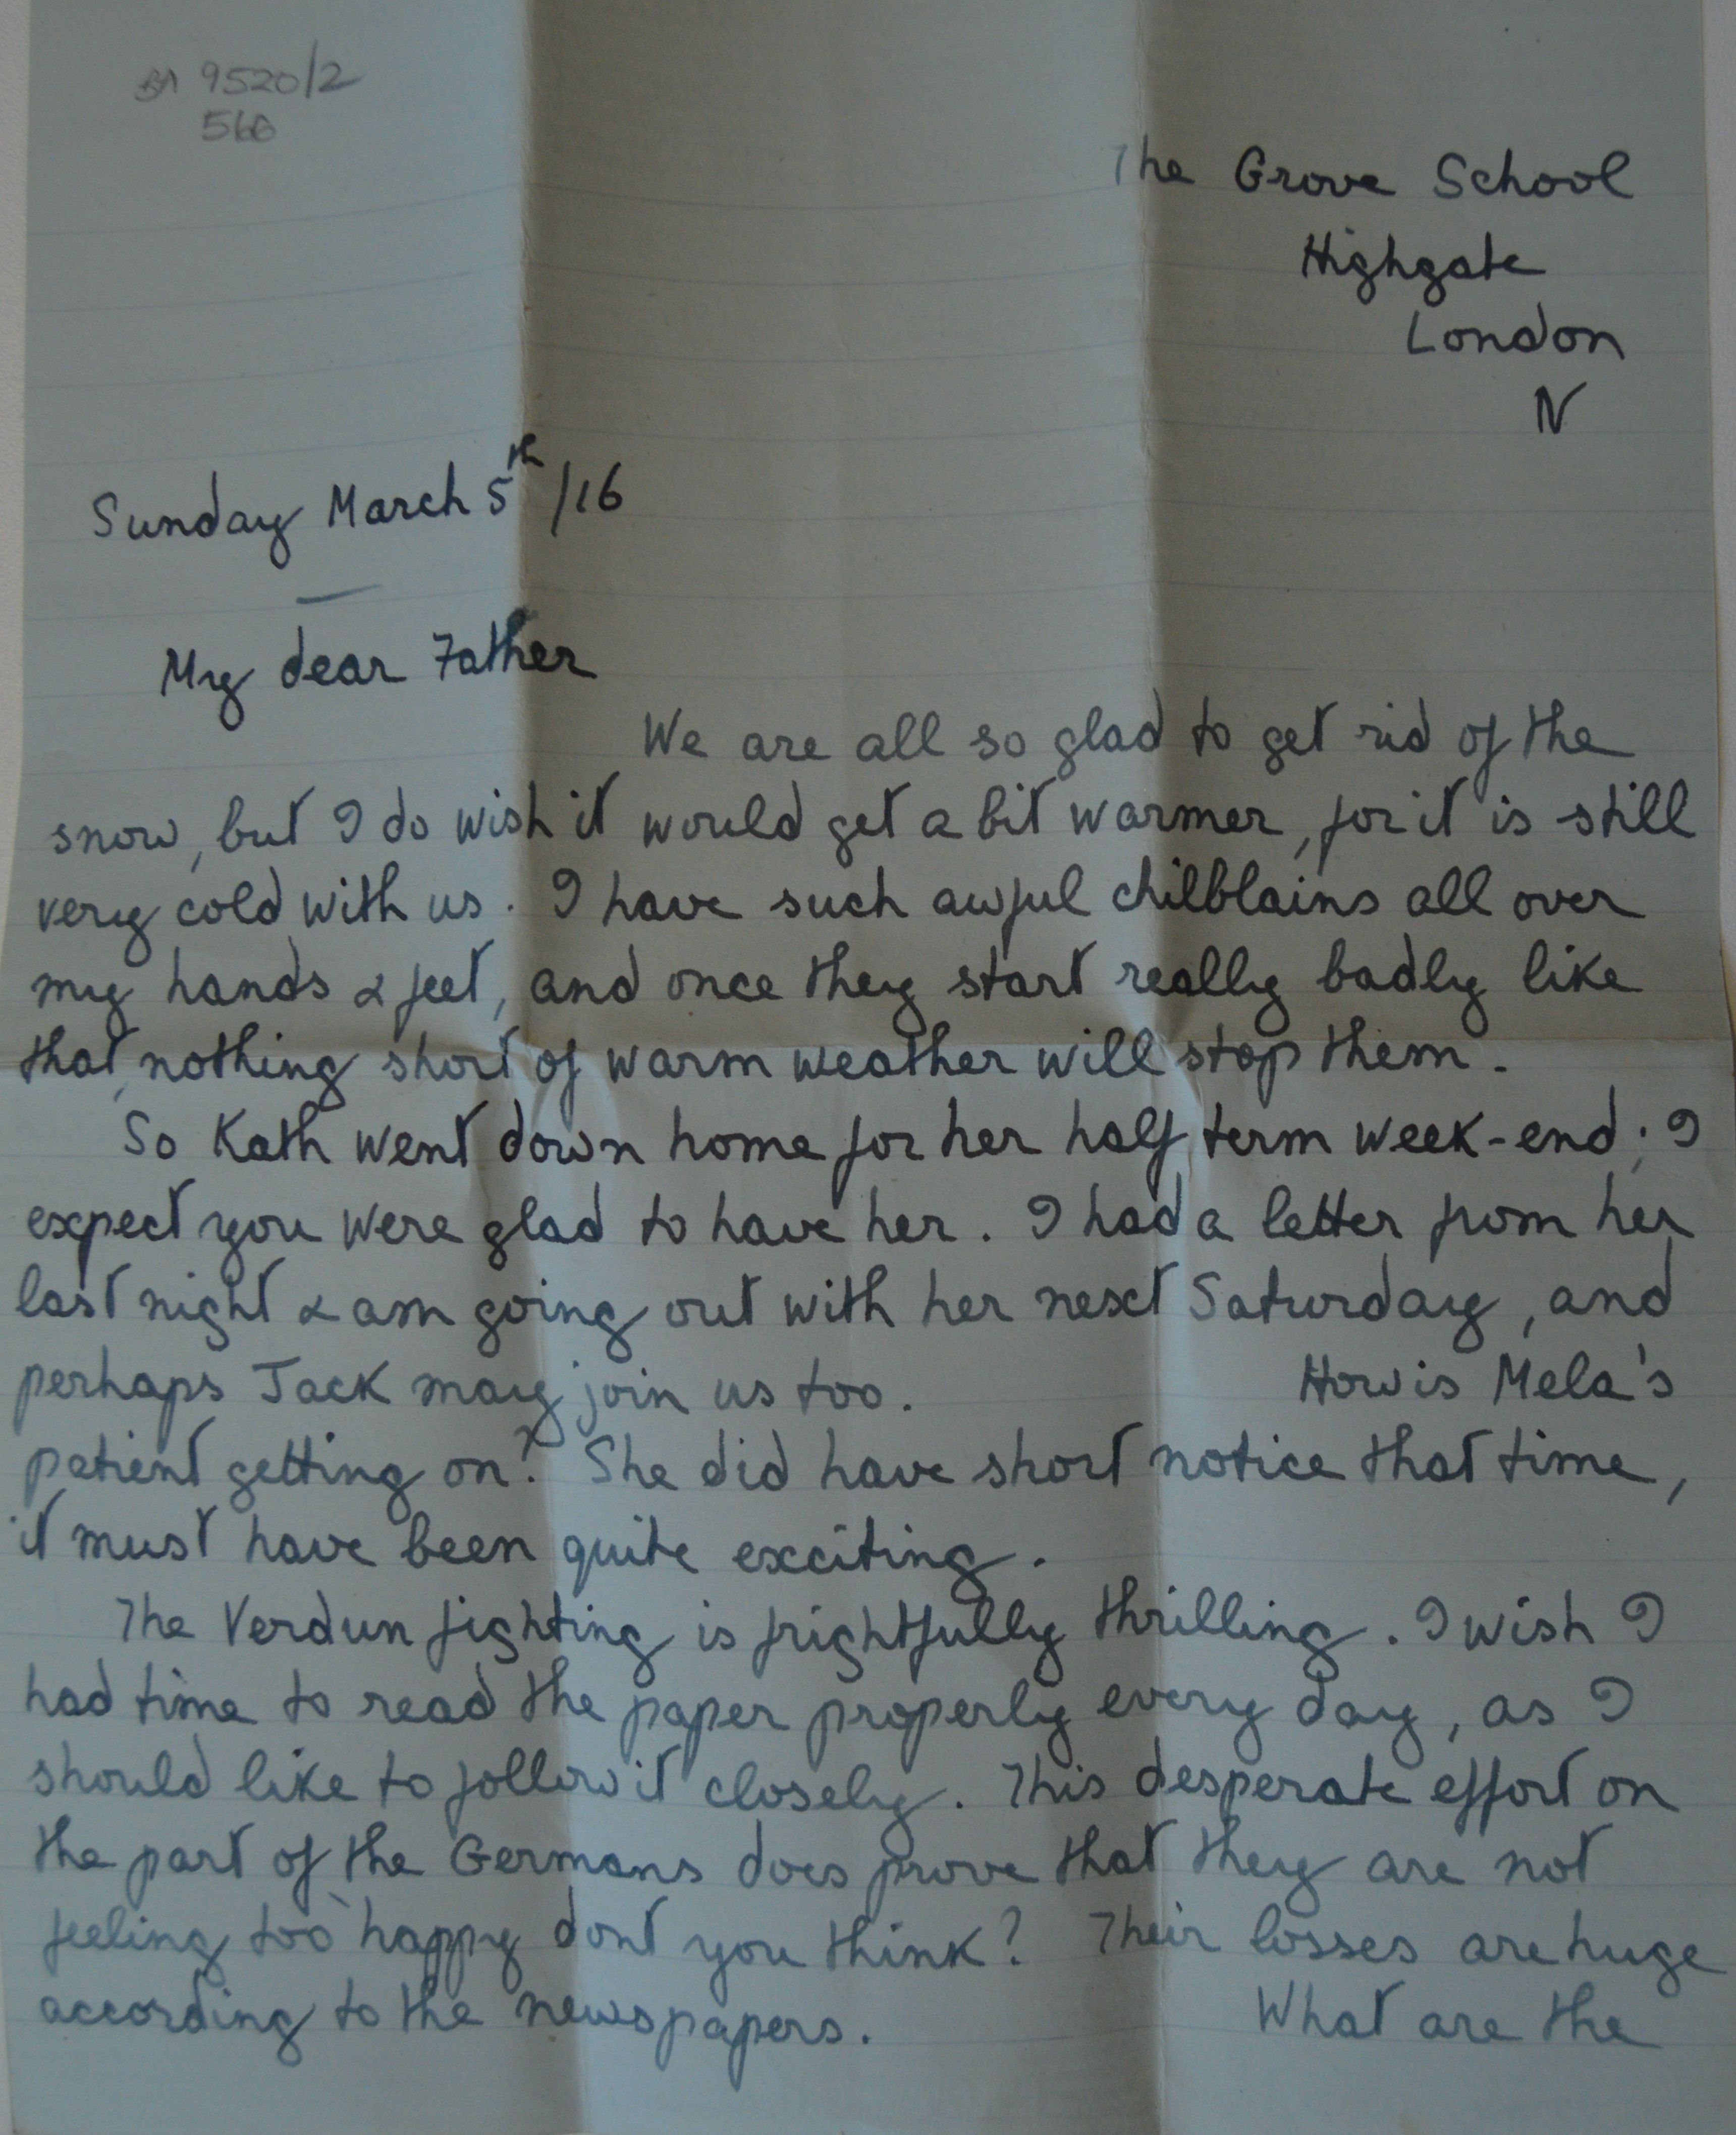 9520/2
The Grove School
Highgate
London
N
Sunday March 5th /16
My dear Father
We are all so glad to get rid of the
snow, but I do wish it would get a bit warmer, for it is still
very cold with us. I have such awful chilblains all over
my hands & feet, and once they start really badly like
that, nothing short of warm weather will stop them.
So Kath went down home for her half term week-end; I
expect you were glad to have her. I had a letter from her
last night & am going out with her next Saturday, and
perhaps Jack may join us too. How is Mela's
patient getting on? She did have short notice that time,
it must have been quite exciting.
The Verdun fighting is frightfully thrilling. I wish I
had time to read the paper properly every day, as I
should like to follow it closely. This desperate effort on
the part of the Germans does prove that they are not
feeling too happy dont you think? Their losses are huge
according to the newspapers. What are the